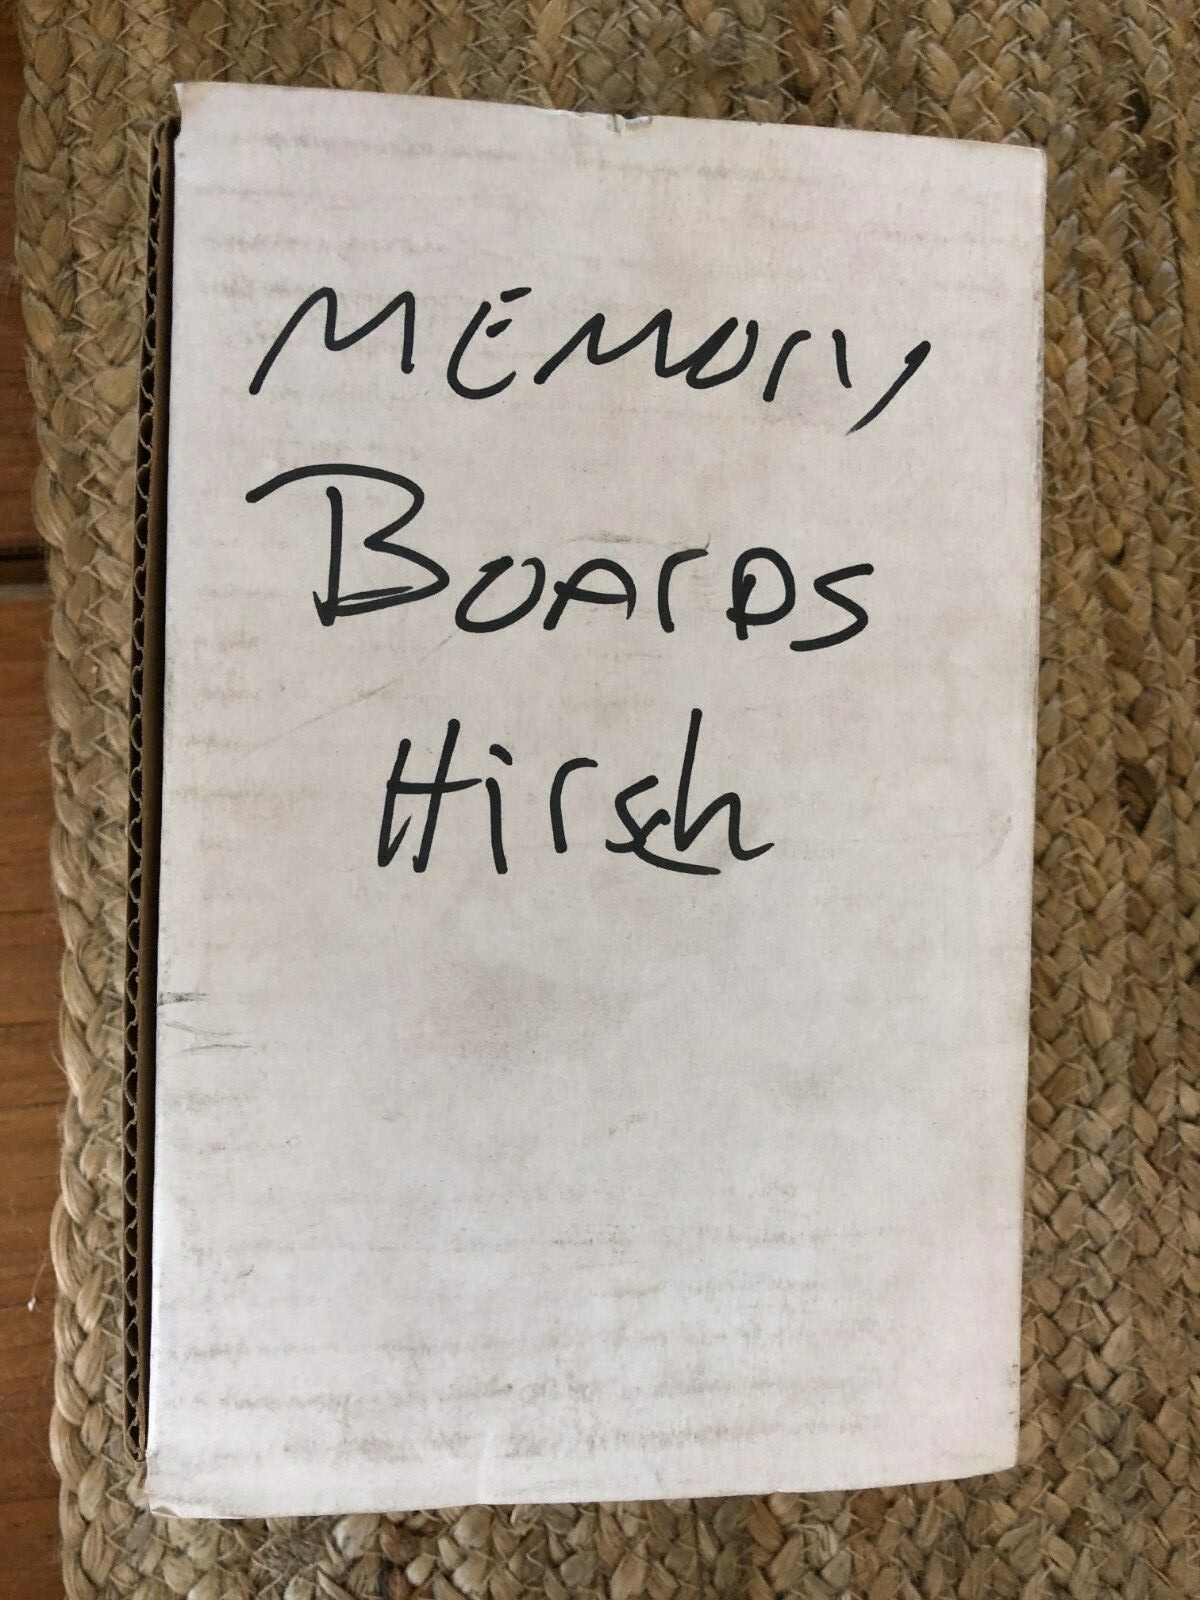 MEMOry
BOArDS
Hirsh